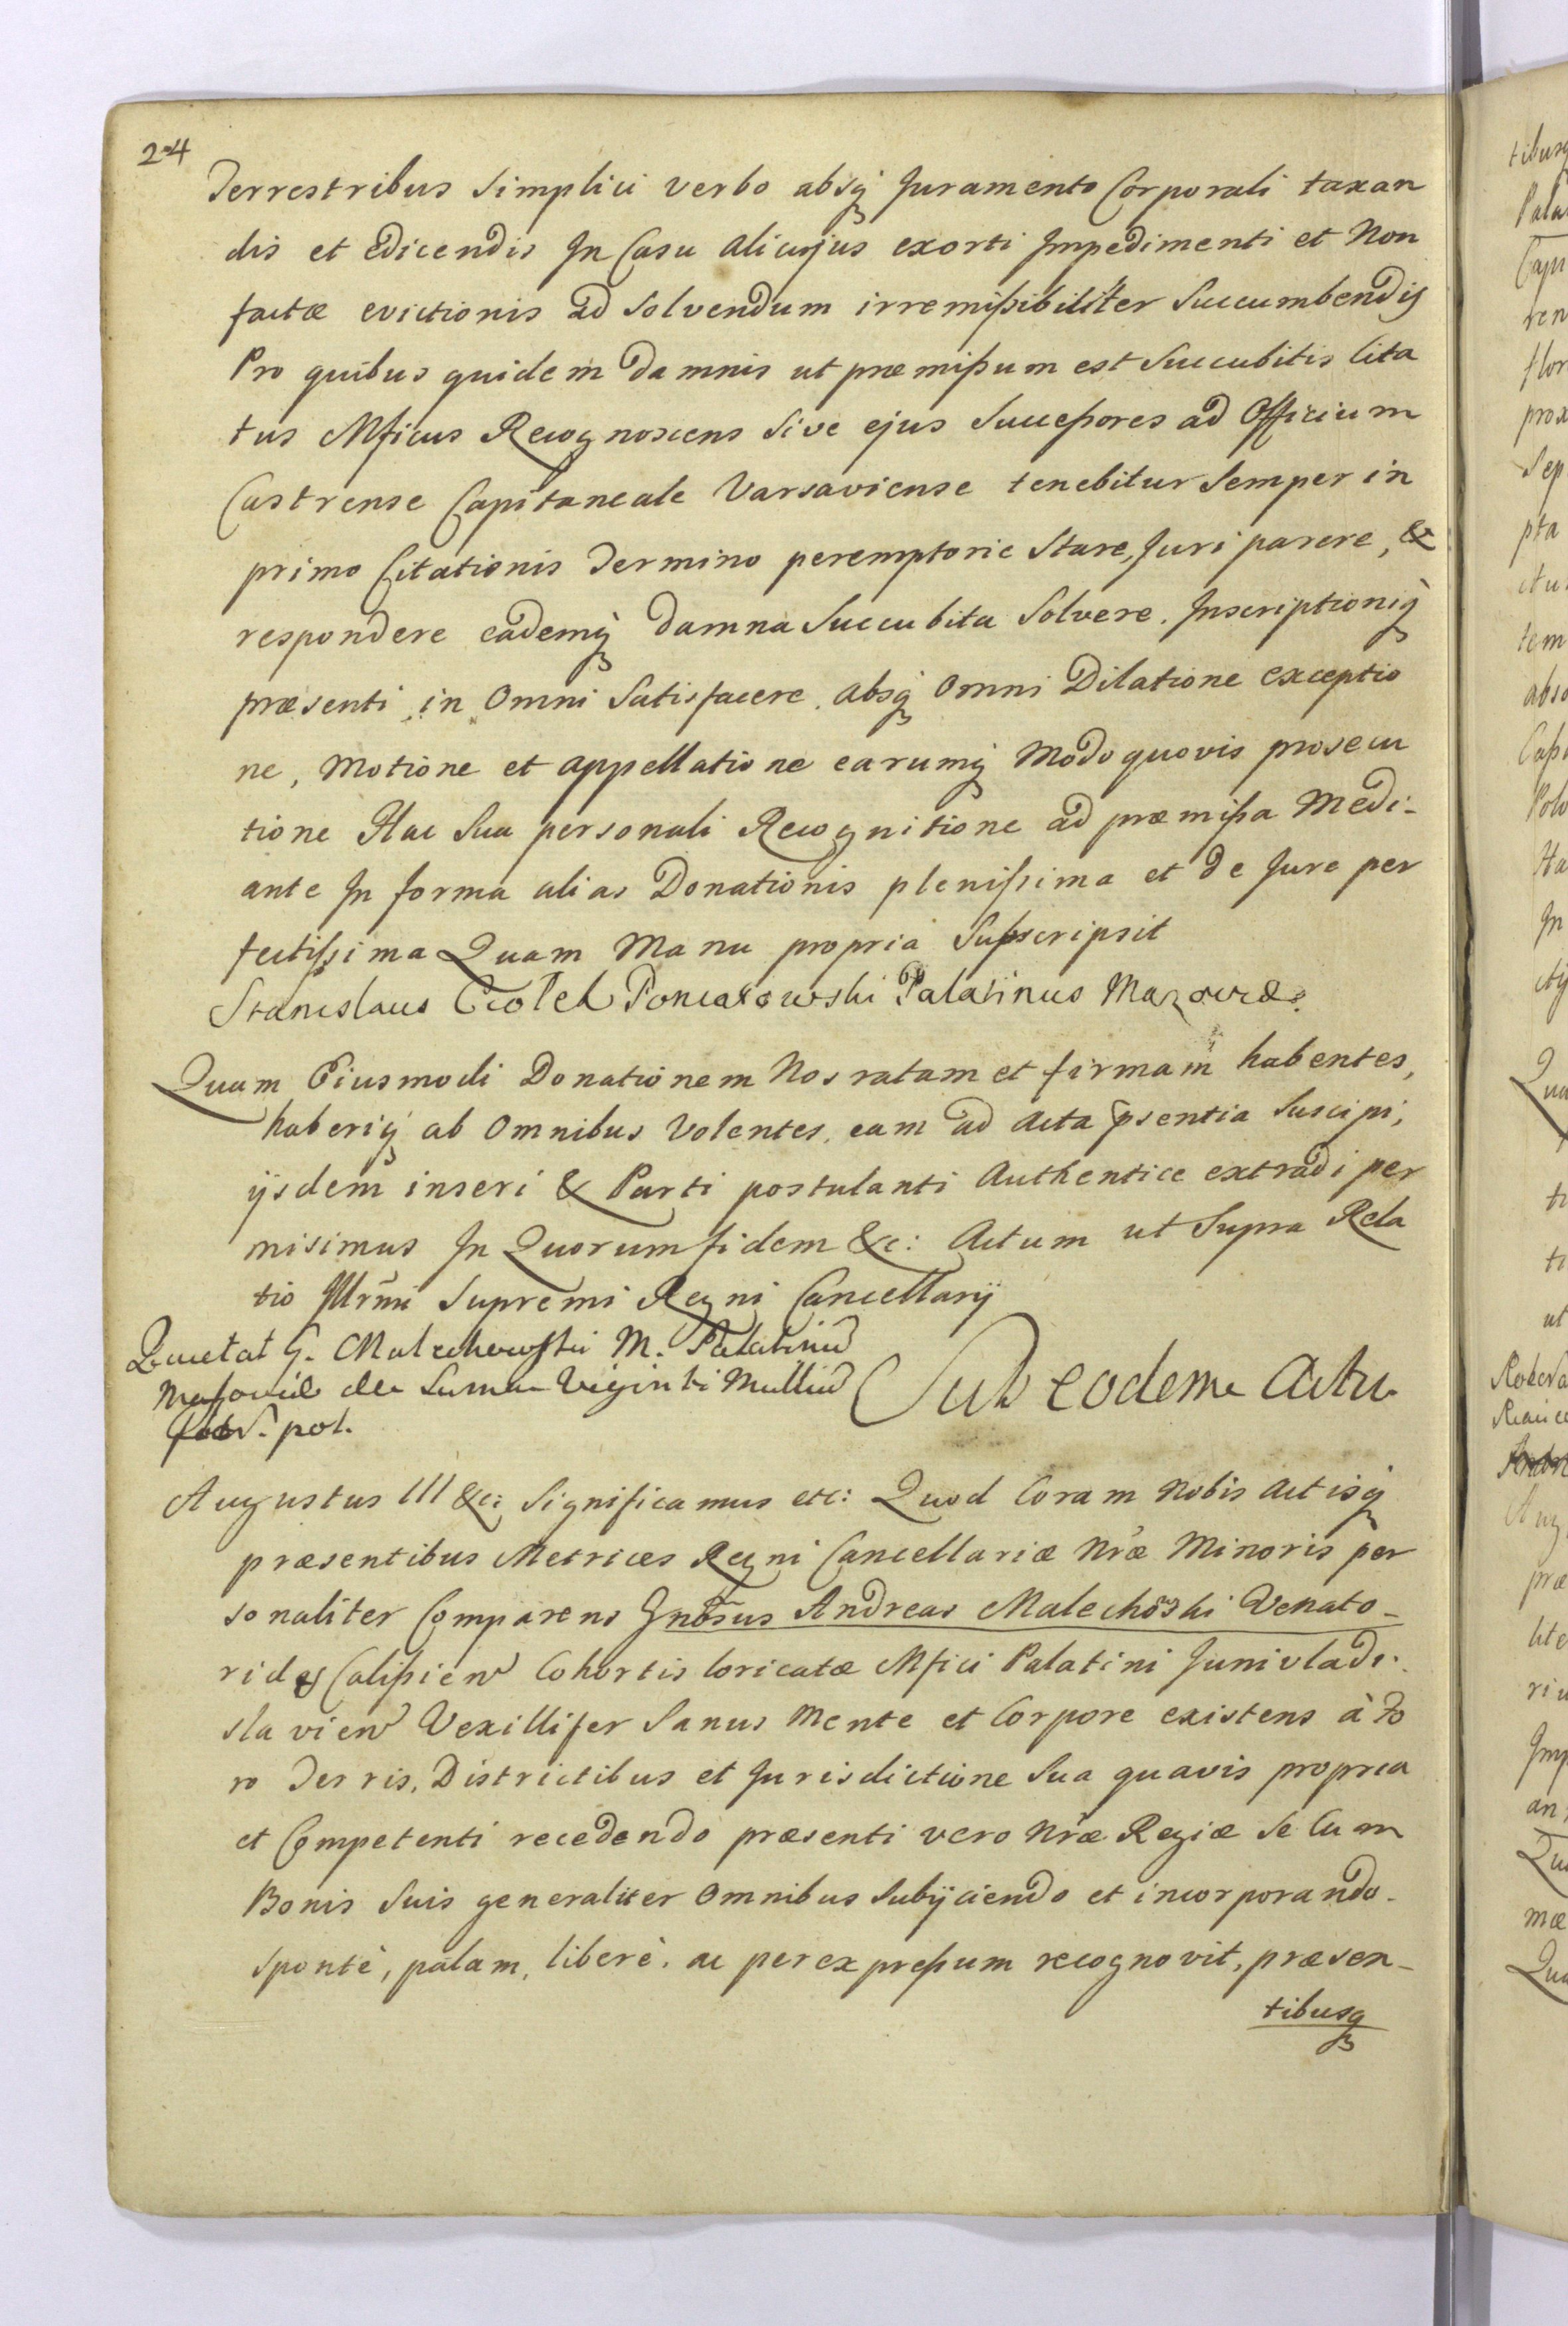 24
Terrestribus Simplici verbo absq̃ Juramento Corporali taxan
dis et Edicendis In Casu alicujus exorti Impedimenti et Non
factæ evictionis ad Solvendum irremißibiliter Succumbendis
Pro quibus quidem Damnis ut præmißum est Succubitis Cita
tus Mficus Recognoscens Sive ejus Succeßores ad Officium
Castrense Capitaneale Varsaviense tenebitur Semper in
primo Citationis Termino peremptorie Stare, Juri parere, &
respondere eademq̃ Damna Succubita Solvere. Inscriptioniq̃
præsenti in Omni Satisfacere. absq̃ Omni Dilatione exceptio
ne, Motione et appellatione earumq̃ Modo quovis prosecu
tione Hac Sua personali Recognitione ad præmißa Medi-
ante In forma alias Donationis plenißima et de Jure per
fectißima Quam Manu propria Subscripsit
Stanislaus Ciołek Poniatowski Palatinus Mazoviæ
Quam Eiusmodi Donationem Nos ratam et firmam habentes,
haberiq̃ ab Omnibus Volentes, eam ad Acta p̃sentia Suscipi,
ijsdem inseri & Parti postulanti Authentice extradi per
misimus In Quorum fidem &c: Actum ut Supra Rela
tio Illrmi Supremi Regni Cancellarij
Quietat G. Malechowski M. Palatinũ
Masoviæ de Summa Viginti Milliũ
flor. pol.
Sub eodem Actu
Augustus III &c: Significamus etc: Quod Coram Nobis Actisq̃
præsentibus Metrices Regni Cancellariæ Nræ Minoris per
sonaliter Comparens Gnosus Andreas Malechowski Venato-
rides Calißien Cohortis loricatæ Mfici Palatini Junivladi-
slavien Vexillifer Sanus Mente et Corpore existens à Fo
ro Terris, Districtibus et Jurisdictione Sua quavis propria
et Competenti recedendo præsenti vero Nræ Regiæ Se Cum
Bonis Suis generaliter Omnibus Subijciendo et incorporando.
Sponte, palam, liberè. ac per expreßum recognovit, præsen-
tibusq̃